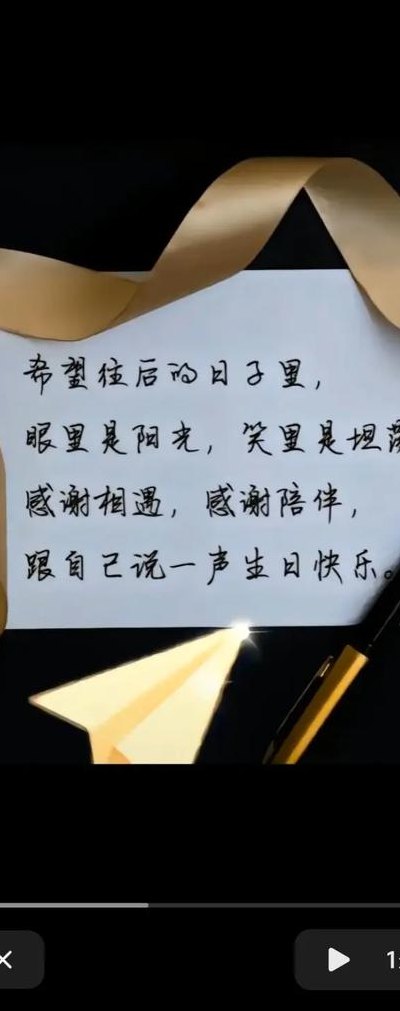 希望往后的日子里，
眼里是阳光，笑里是坦
感谢相遇，感谢陪伴，
跟自己说一声生日快乐。